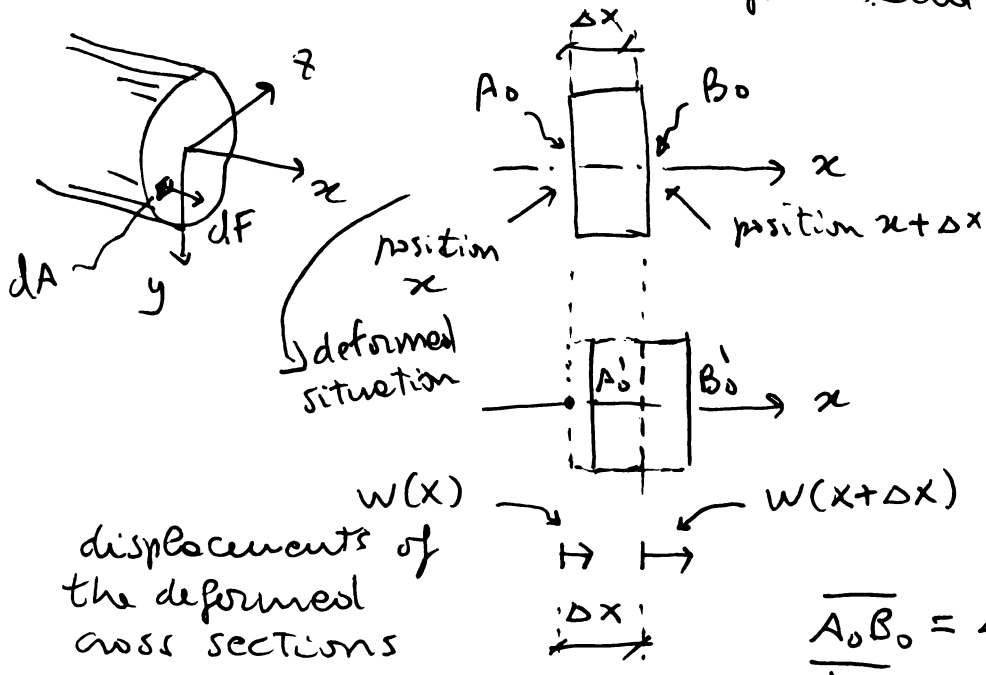 Δx
z
A₀
B₀
x
x
dF
position x+Δx
position
x
dA
y
deformed
situation
A₀'
B₀'
x
w(x)
w(x+Δx)
displacements of
the deformed
cross sections
Δx
A₀B₀ =